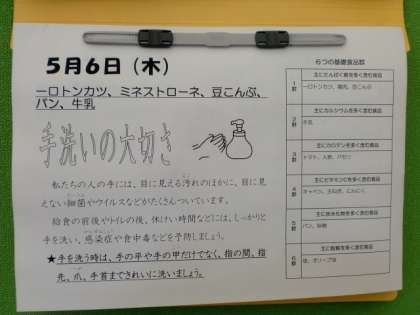 5月6日（木）
一口トンカツ、ミネストローネ、豆こんぶ、
パン、牛乳
手洗いの大切さ
私たちの人の手には、目に見える汚れのほかに、目に見
えない細菌やウイルスなどがたくさんついています。
給食の前後やトイレの後、休けい時間などには、しっかりと
手を洗い、感染症や食中毒などを予防しましょう。
★手を洗う時は、手の平や手の甲だけでなく、指の間、指
先、爪、手首まできれいに洗いましょう。
6つの基礎食品群
主にたんぱく質を多く含む食品
1群
一口トンカツ、豚肉、豆こんぶ
主にカルシウムを多く含む食品
2群
牛乳
主にカロテンを多く含む食品
3群
トマト、人参、パセリ
主にビタミンCを多く含む食品
4群
キャベツ、玉ねぎ、にんにく
主に炭水化物を多く含む食品
5群
パン、砂糖
主に脂質を多く含む食品
6群
油、オリーブ油